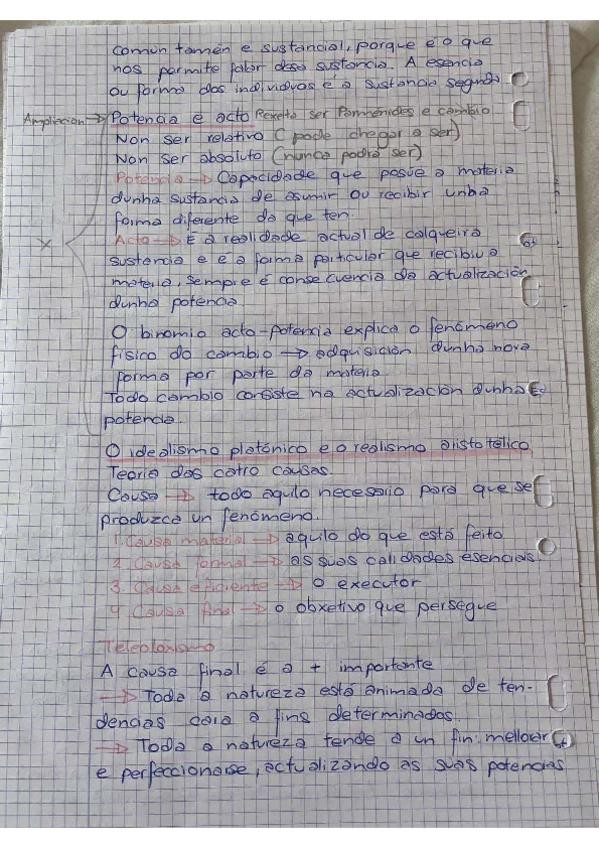 común tamén e sustancial, porque é o que
nos permite falar desa sustancia. A esencia
ou forma dos individuos é a sustancia segunda
Ampliación → Potencia e acto Rexeita ser Parménides e cambio
Non ser relativo (pode chegar a ser)
Non ser absoluto (nunca podrá ser)
Potencia → Capacidade que posúe a materia
dunha sustancia de asumir ou recibir unha
forma diferente da que ten.
Acto → É a realidade actual de calqueira
sustancia e e a forma particular que recibiu a
materia, sempre é consecuencia da actualización
dunha potencia.
O binomio acto-potencia explica o fenómeno
físico do cambio → adquisición dunha nova
forma por parte da materia
Todo cambio consiste na actualización dunha
potencia.
O idealismo platónico e o realismo aristotélico
Teoría das catro causas.
Causa → todo aquilo necesario para que se
produzca un fenómeno.
1. Causa material → aquilo do que está feito
2. Causa formal → as suas calidades esenciais.
3. Causa eficiente → o executor
4. Causa final → o obxetivo que persegue
Teleoloxismo
A causa final é a + importante
→ Toda a natureza está animada de ten-
dencias cara a fins determinados.
→ Toda a natureza tende a un fin: mellorar
e perfeccionarse, actualizando as suas potencias